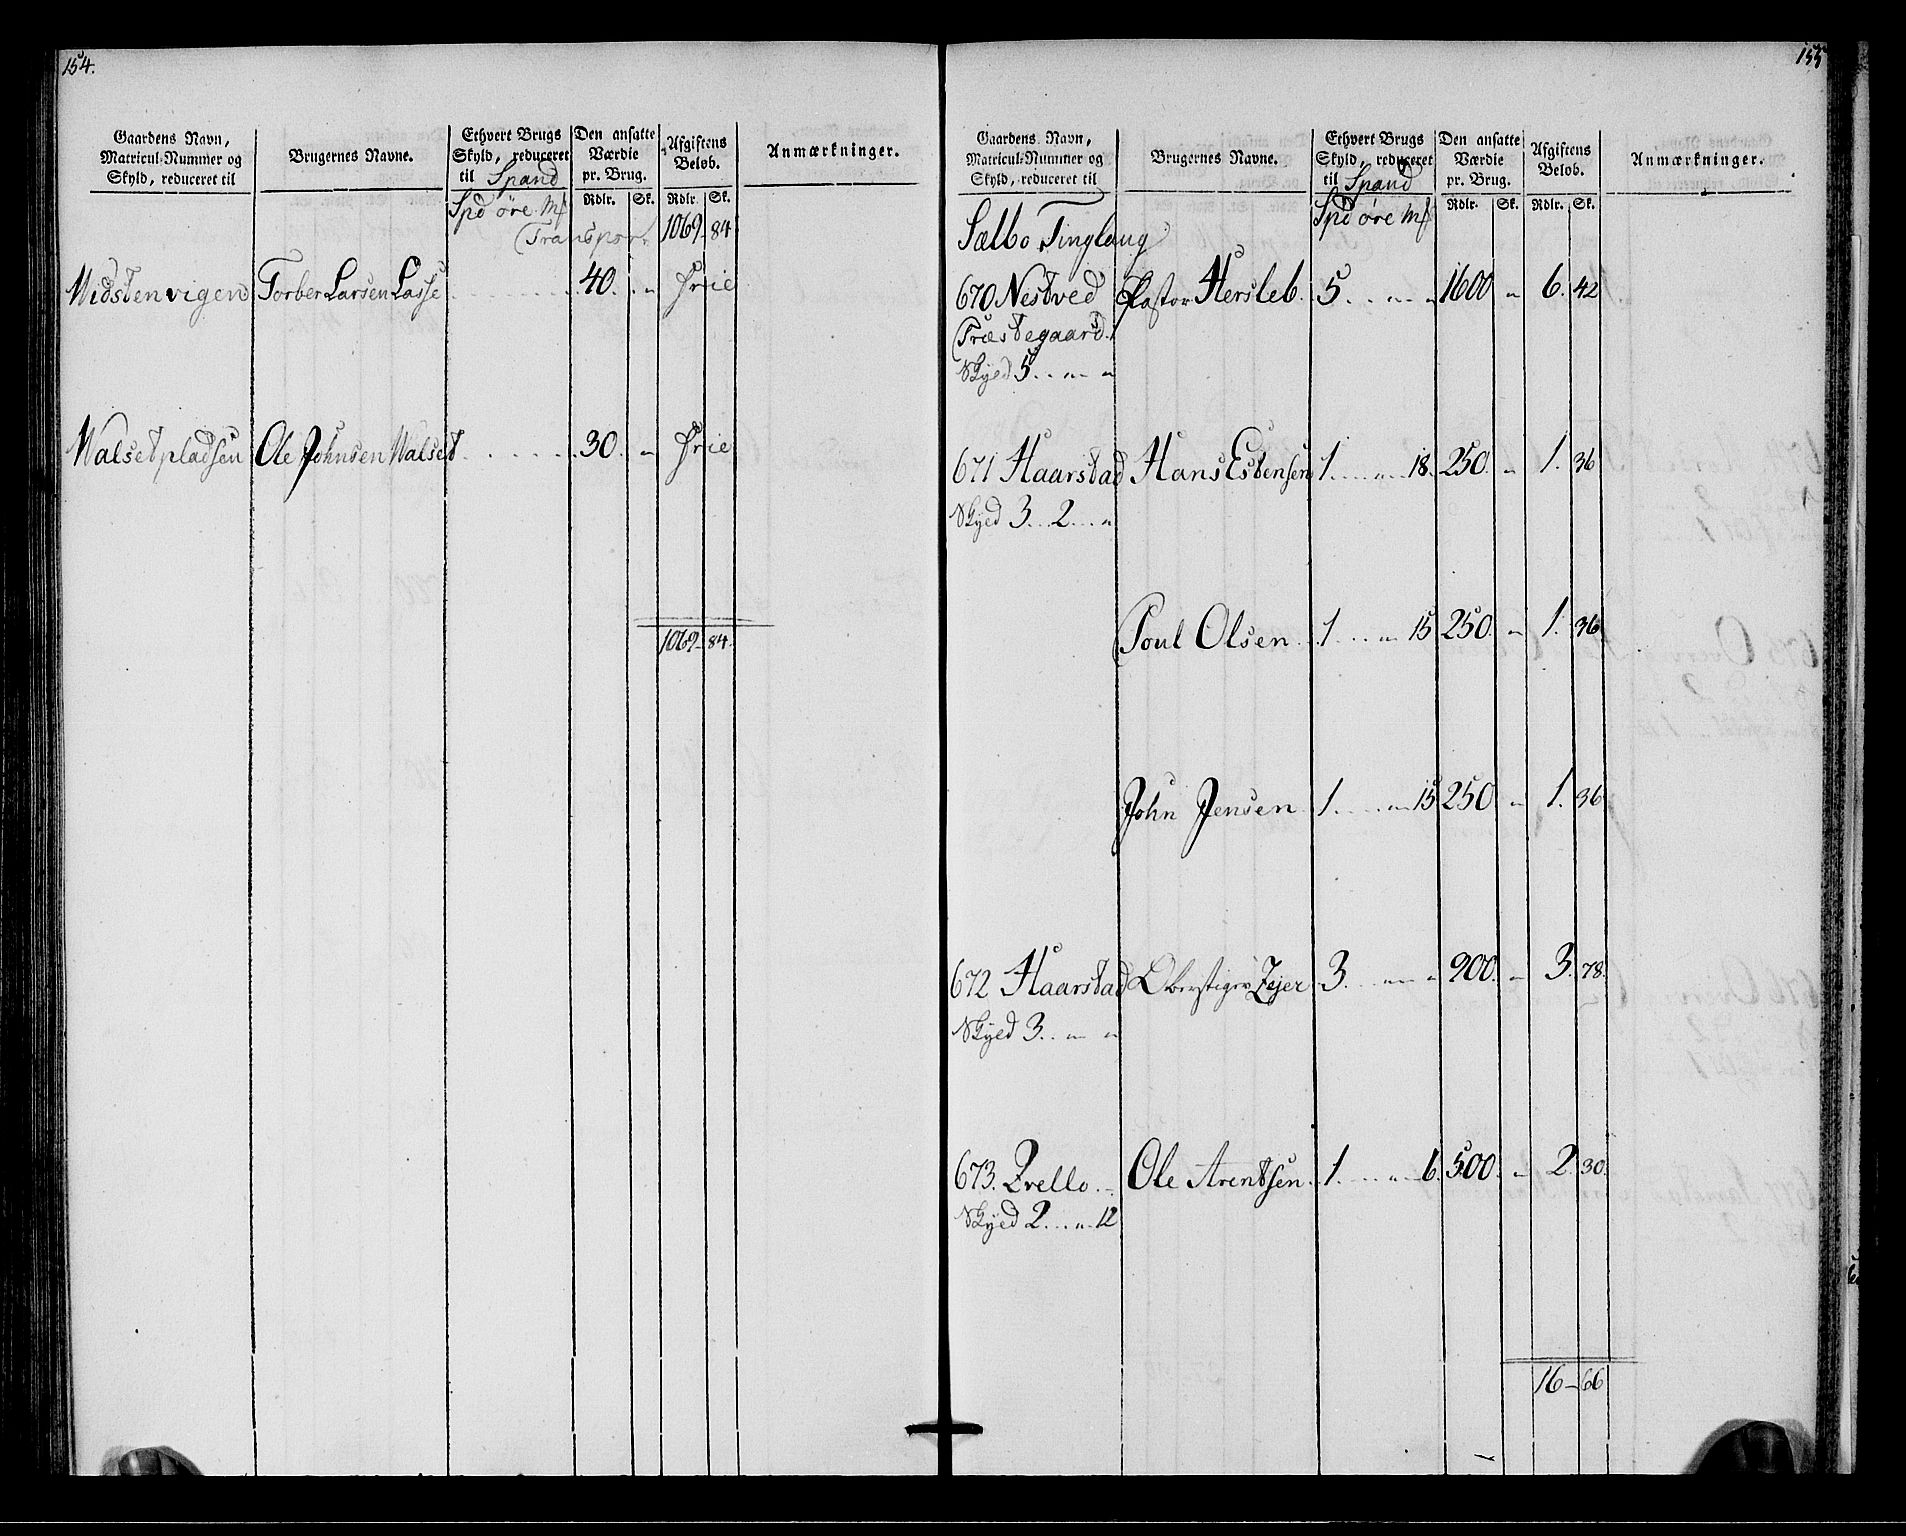 154.
Gaardens Navn, Matricul-Nummer og Skyld, reduceret til | Brugernes Navne. | Ethvert Brugs Skyld, reduceret til Spand | Den ansatte Værdie pr. Brug. | Afgiftens Beløb. | Anmærkninger.
Spd öre Mf | Rdlr. | Sk. | Rdlr. | Sk.
Transport 1069 - 84
Midstenvigen Torber Larsen Lasse 40. „ Frie
Walsetpladsen Ole Johnsen Walset 30. „ Frie
1069 - 84.
155
Gaardens Navn, Matricul-Nummer og Skyld, reduceret til | Brugernes Navne. | Ethvert Brugs Skyld, reduceret til Spand | Den ansatte Værdie pr. Brug. | Afgiftens Beløb. | Anmærkninger.
Spd öre Mf | Rdlr. | Sk. | Rdlr. | Sk.
Sælbo Tinglaug
670 Nestved Pastor Hersleb. 5 „ „ 1600 „ 6. 42
Præstegaard.
Skyed 5 „ „
671 Haarstad Hans Estensen 1 „ 18. 250. „ 1. 36
Skyed 3 2 „
Poul Olsen 1 „ 15 250. „ 1. 36
John Jensen 1 „ 15 250 „ 1. 36
672 Haarstad Oberstinde Zejer 3 „ „ 900. „ 3. 78.
Skyed 3 „ „
673. Qvello Ole Arentsen 1 „ 6. 500. „ 2. 30.
Skyed 2 „ 12
16 - 66